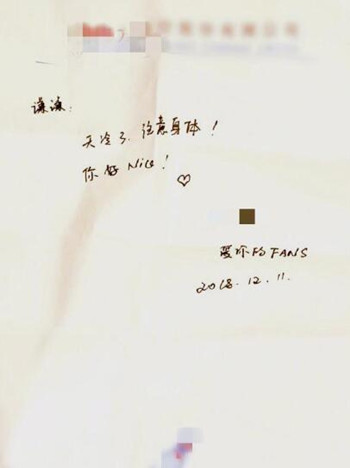 谦源：
天冷了、注意身体！
你好Nice！
爱你的FANS
2018.12.11.